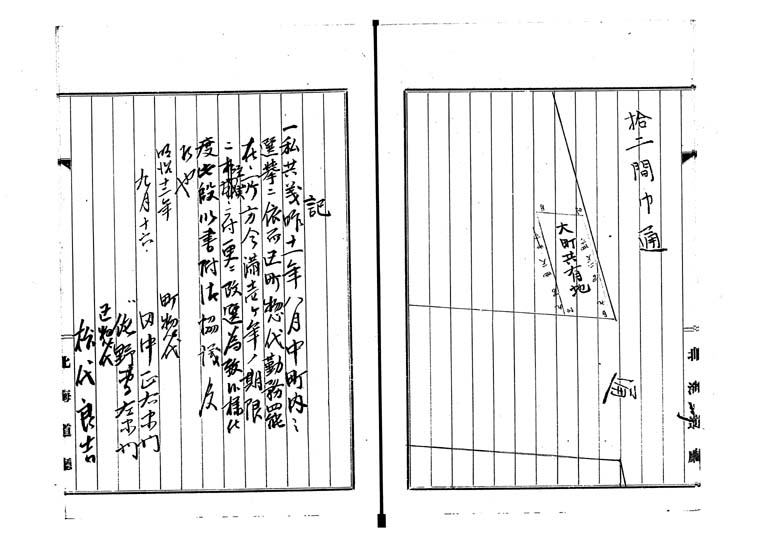 拾二間巾通
大町共有地
北海道廳
記
一私共義昨十一年八月中町内ニ
選挙ニ依而区町惣代勤務罷
在候所方今満壱ヶ年ノ期限
ニ相成候ニ付更ニ改選為致候様仕
度此段以書附御協議及
候也
明治十二年
九月十六
町惣代
田中正右衛門
佐野専左衛門
区惣代
松代良吉
北海道廳